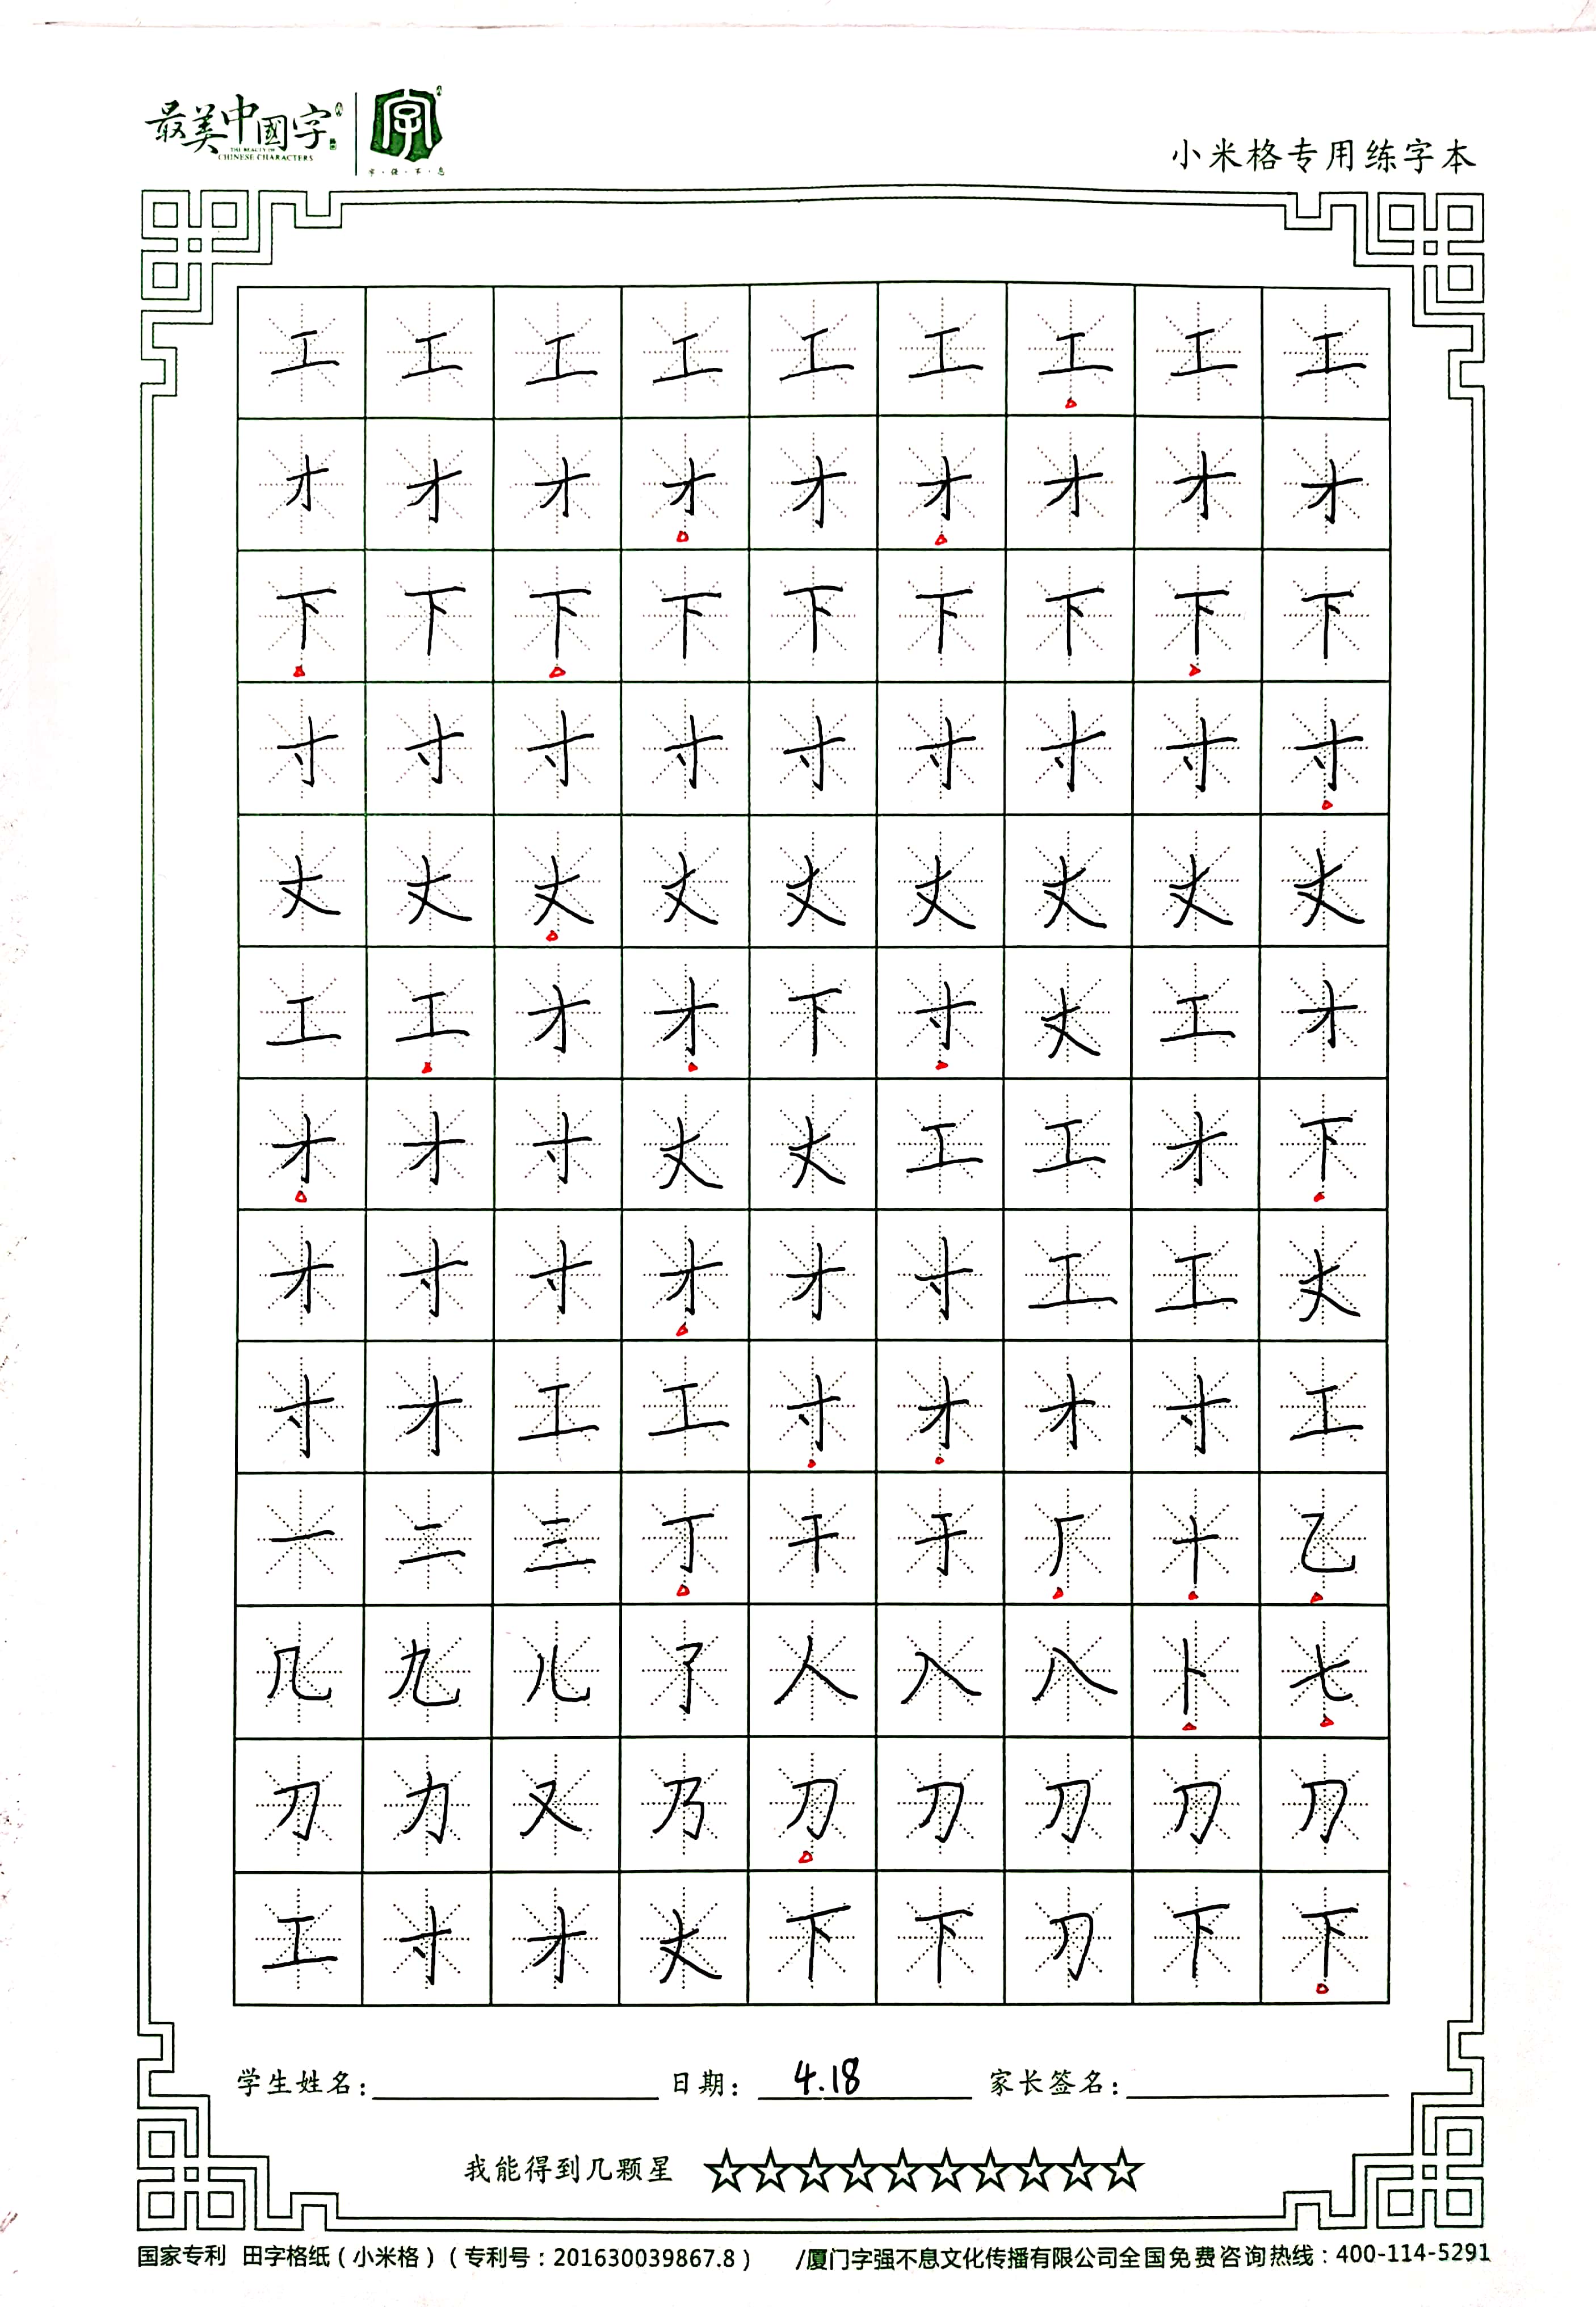 最美中國字
THE BEAUTY OF
CHINESE CHARACTERS
字
字·强·不·息
小米格专用练字本
工工工工工工工工工
才才才才才才才才才
下下下下下下下下下
寸寸寸寸寸寸寸寸寸
丈丈丈丈丈丈丈丈丈
工工才才下寸丈工才
才才寸丈丈工工才下
才寸寸才才寸工工丈
寸才工工寸才才寸工
一二三丁干于厂十乙
几九儿了人入八卜七
刀力又乃刀刀刀刀刀
工寸才丈下下刀下下
学生姓名: 日期: 4.18 家长签名:
我能得到几颗星 ☆☆☆☆☆☆☆☆☆☆
国家专利 田字格纸(小米格)(专利号:201630039867.8) /厦门字强不息文化传播有限公司全国免费咨询热线:400-114-5291